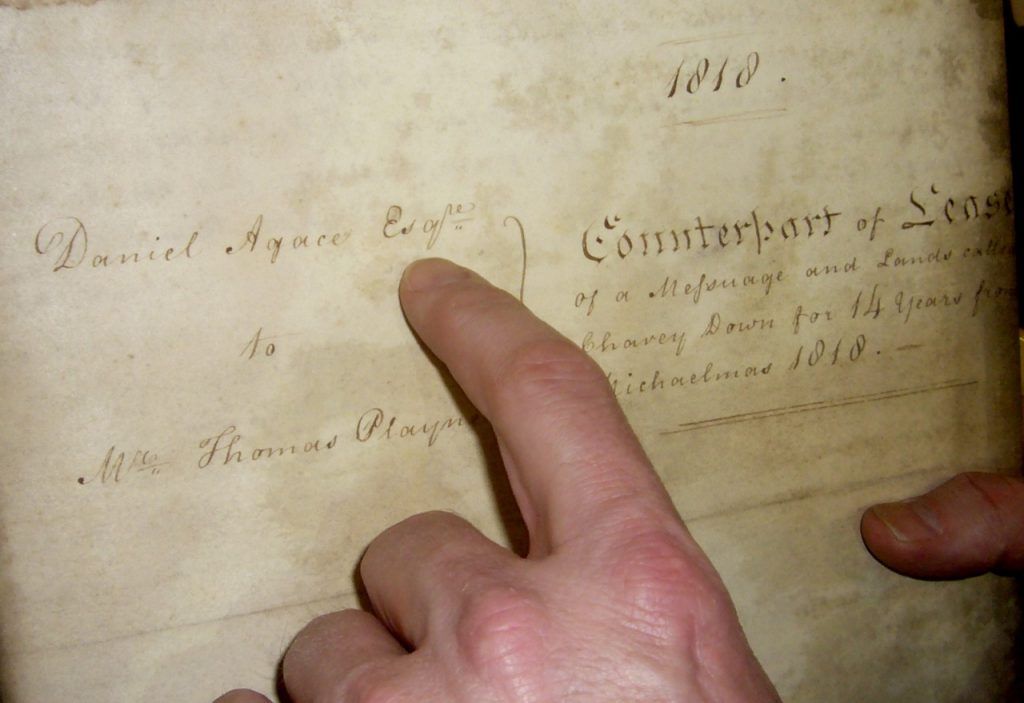 1818.
Daniel Agace Esqre
to
Mr. Thomas
Counterpart of Lease
of a Messuage and Lands
Chavey Down for 14 Years from
Michaelmas 1818.